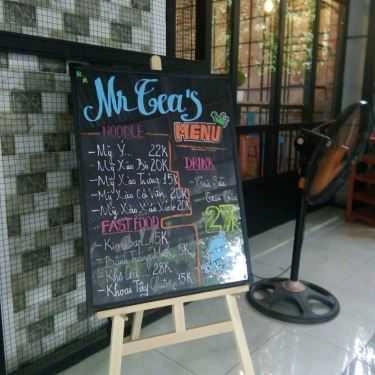 Mr Tea's
MENU
NOODLE
- Mỳ Ý 22K
- Mỳ Xào Bò 20K
- Mỳ Xào Trứng 15K
- Mỳ Xào Cá Viên 20K
- Mỳ Xào Xúc Xích 20K
FAST FOOD
- Kimbap 15K
- Bánh
- Khô Gà 28K
- Khoai Tây 25K
DRINK
- Trà Sữa
27K